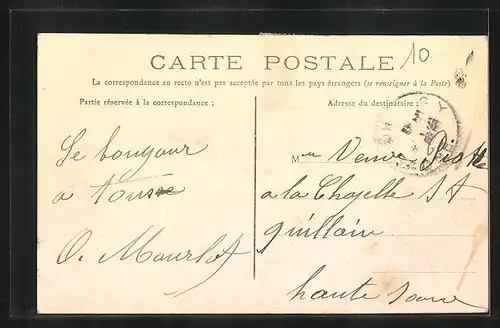 CARTE POSTALE
10
La correspondance au recto n'est pas acceptée par tous les pays étrangers (se renseigner à la Poste)
Partie réservée à la correspondance :
Adresse du destinataire :
Le bonjour
a tous
O. Mourlot
M Veuve
a la Chapelle St
quillain
haute Saone